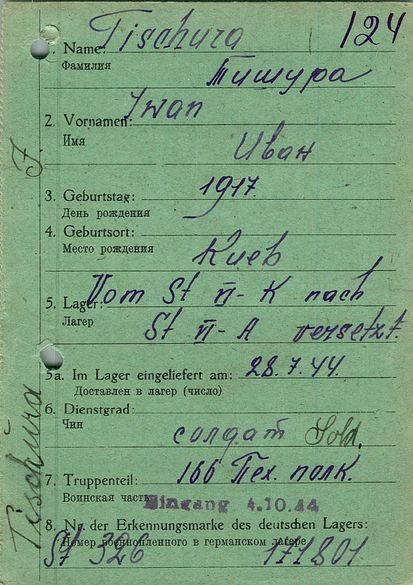 124
1. Name: Tischura
Фамилия
Тишура
2. Vornamen: Iwan
Имя
Иван
3. Geburtstag: 1917.
День рождения
4. Geburtsort:
Место рождения
Киев
Vom St VI-K nach
5. Lager:
Лагер
St VI-A versetzt.
5a. Im Lager eingeliefert am: 28.7.44.
Доставлен в лагер (число)
6. Dienstgrad:
Чин
солдат Sold.
7. Truppenteil: 166 Пех. полк.
Воинская часть
Eingang 4.10.44
8. Nr. der Erkennungsmarke des deutschen Lagers:
Номер военнопленного в германском лагере
St 326 171801
F
Tischura